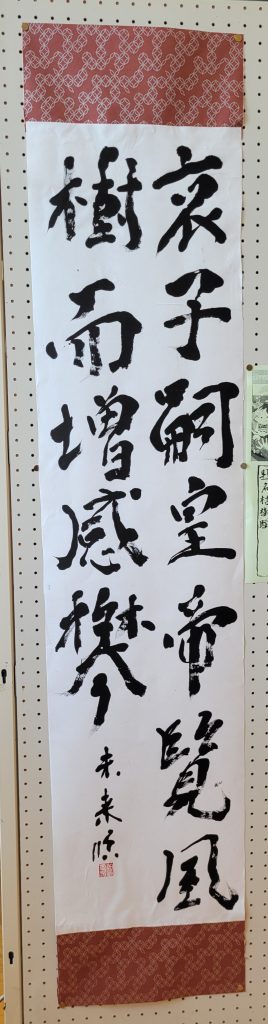 哀子嗣皇帝覽風
樹而增感
未来